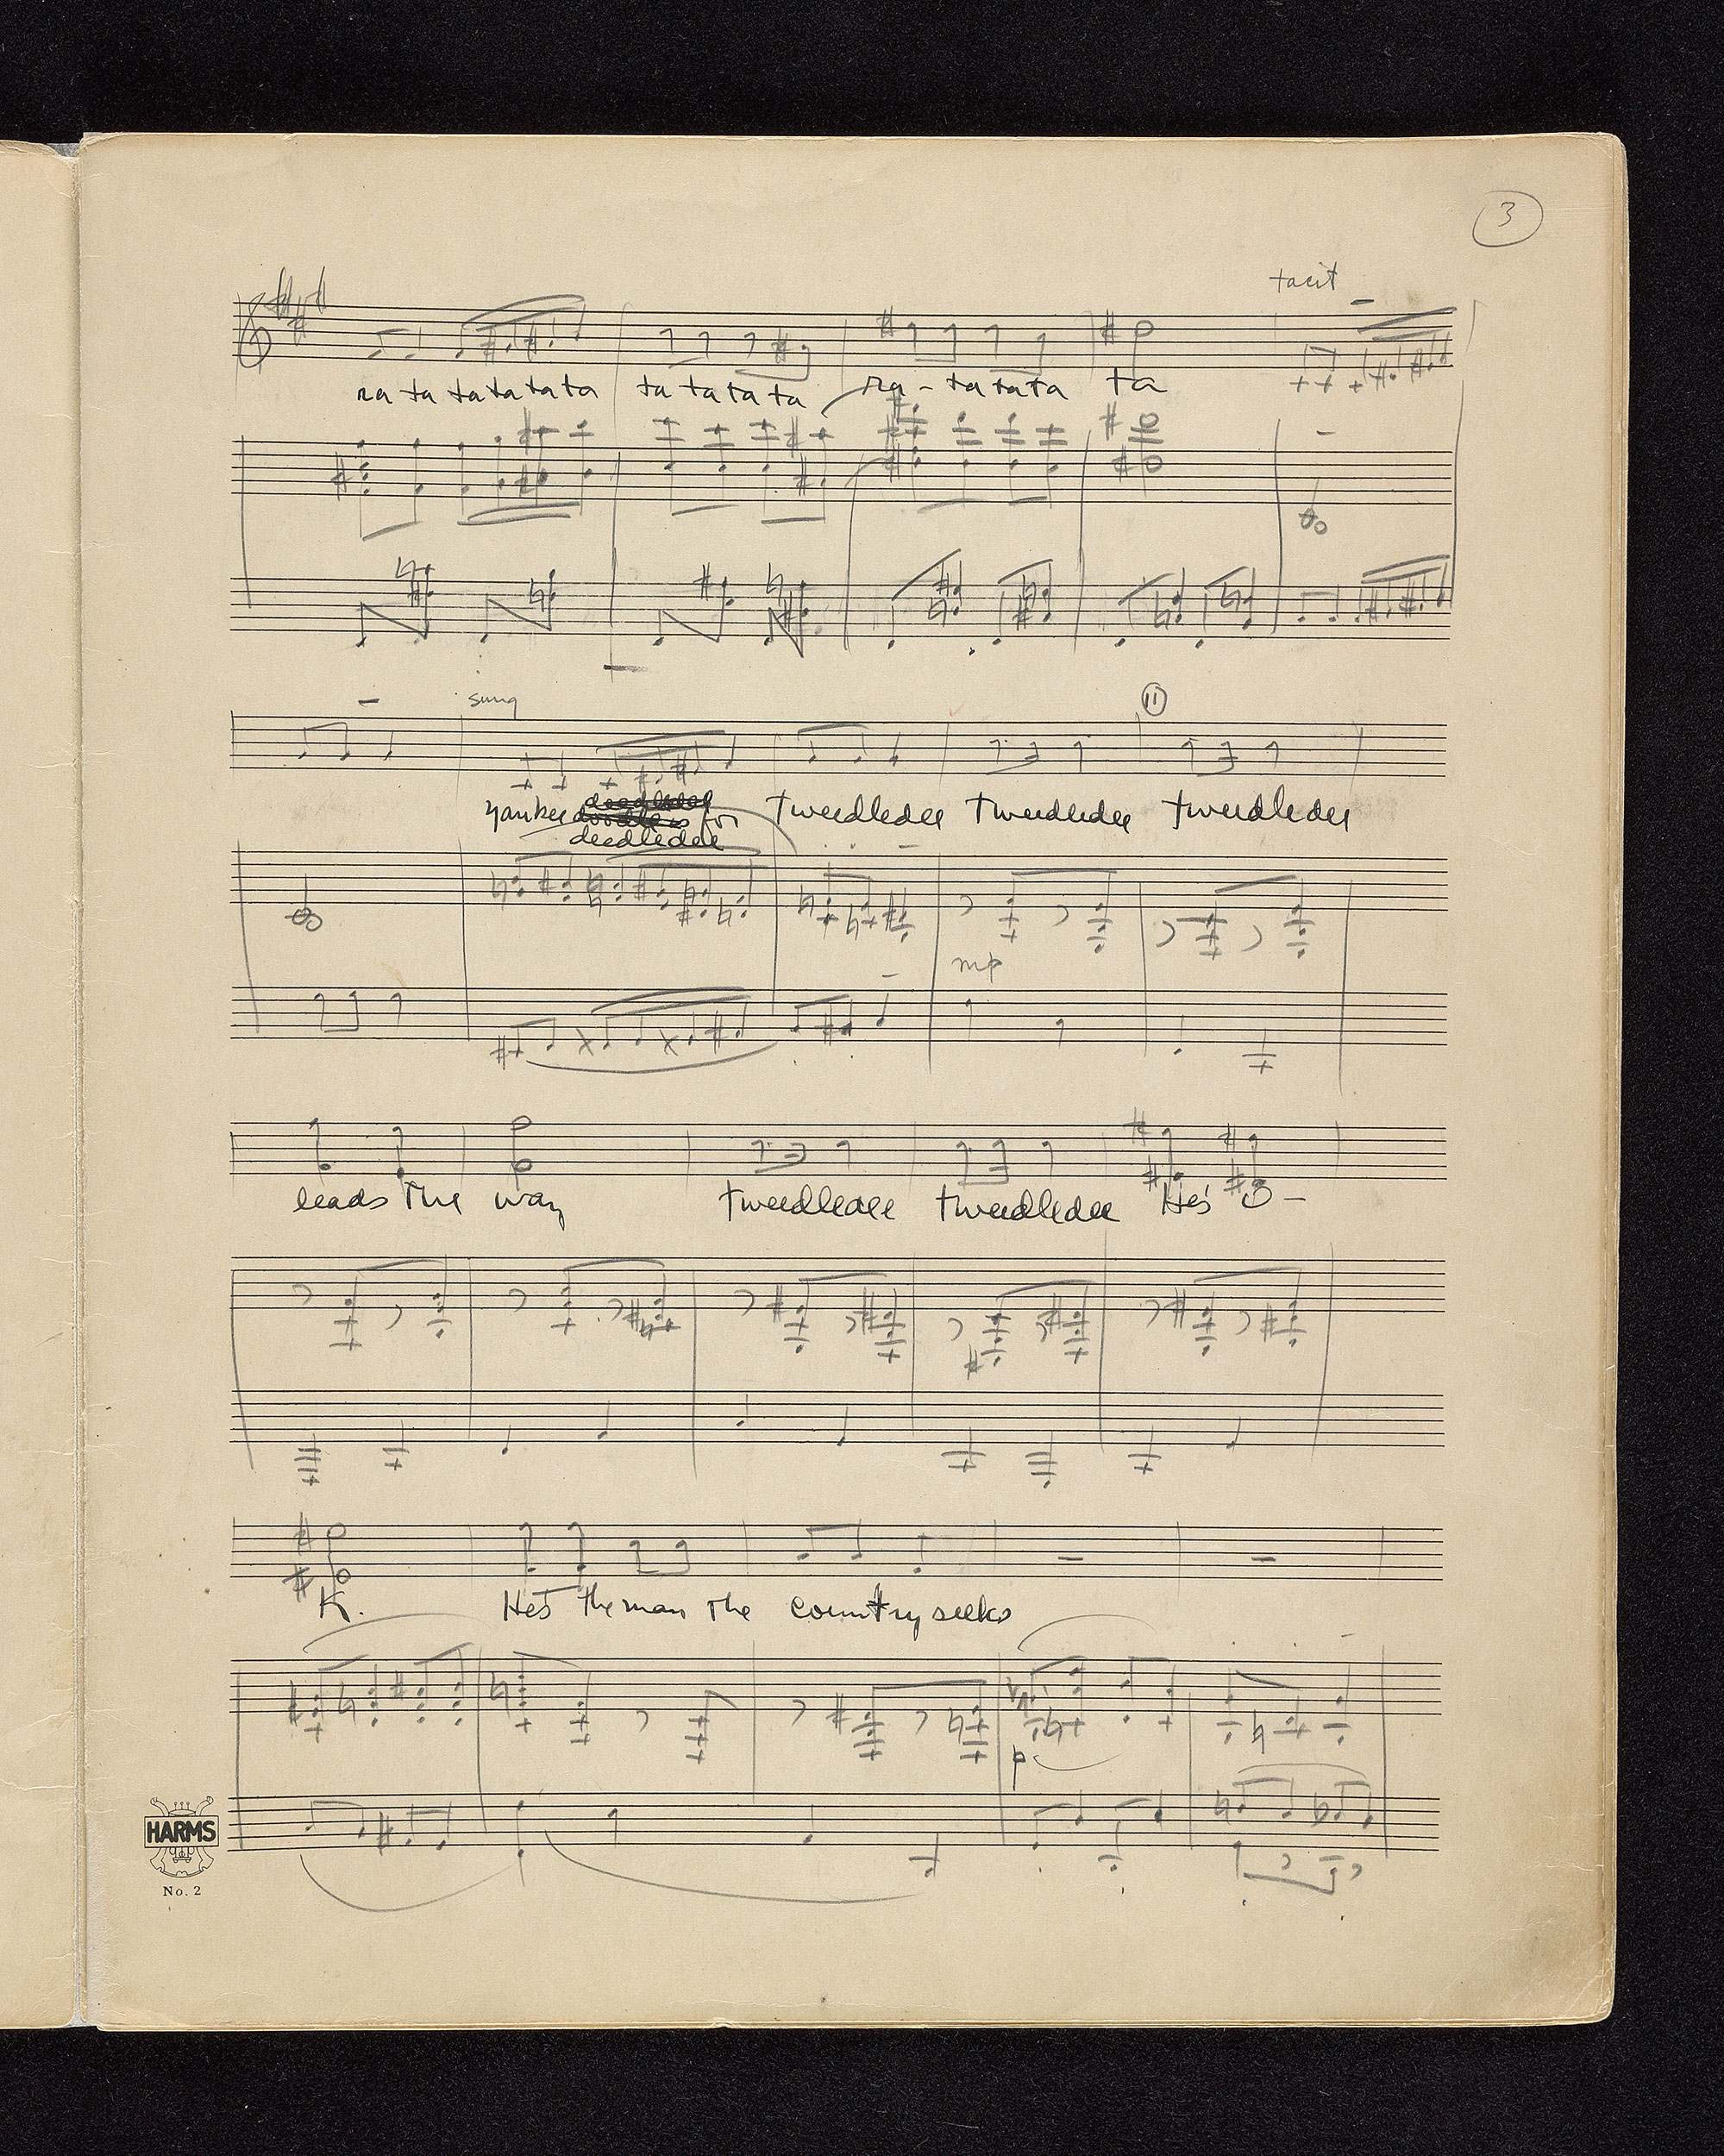 3
tacit
ra ta ta ta ta ta ta ta ta ta ra - ta ta ta ta
sung
11
Yankee doodle is for tweedledee tweedledee tweedledee
deedledee
mp
leads the way tweedledee tweedledee He's O-
K. He's the man the country seeks
p
HARMS
No. 2